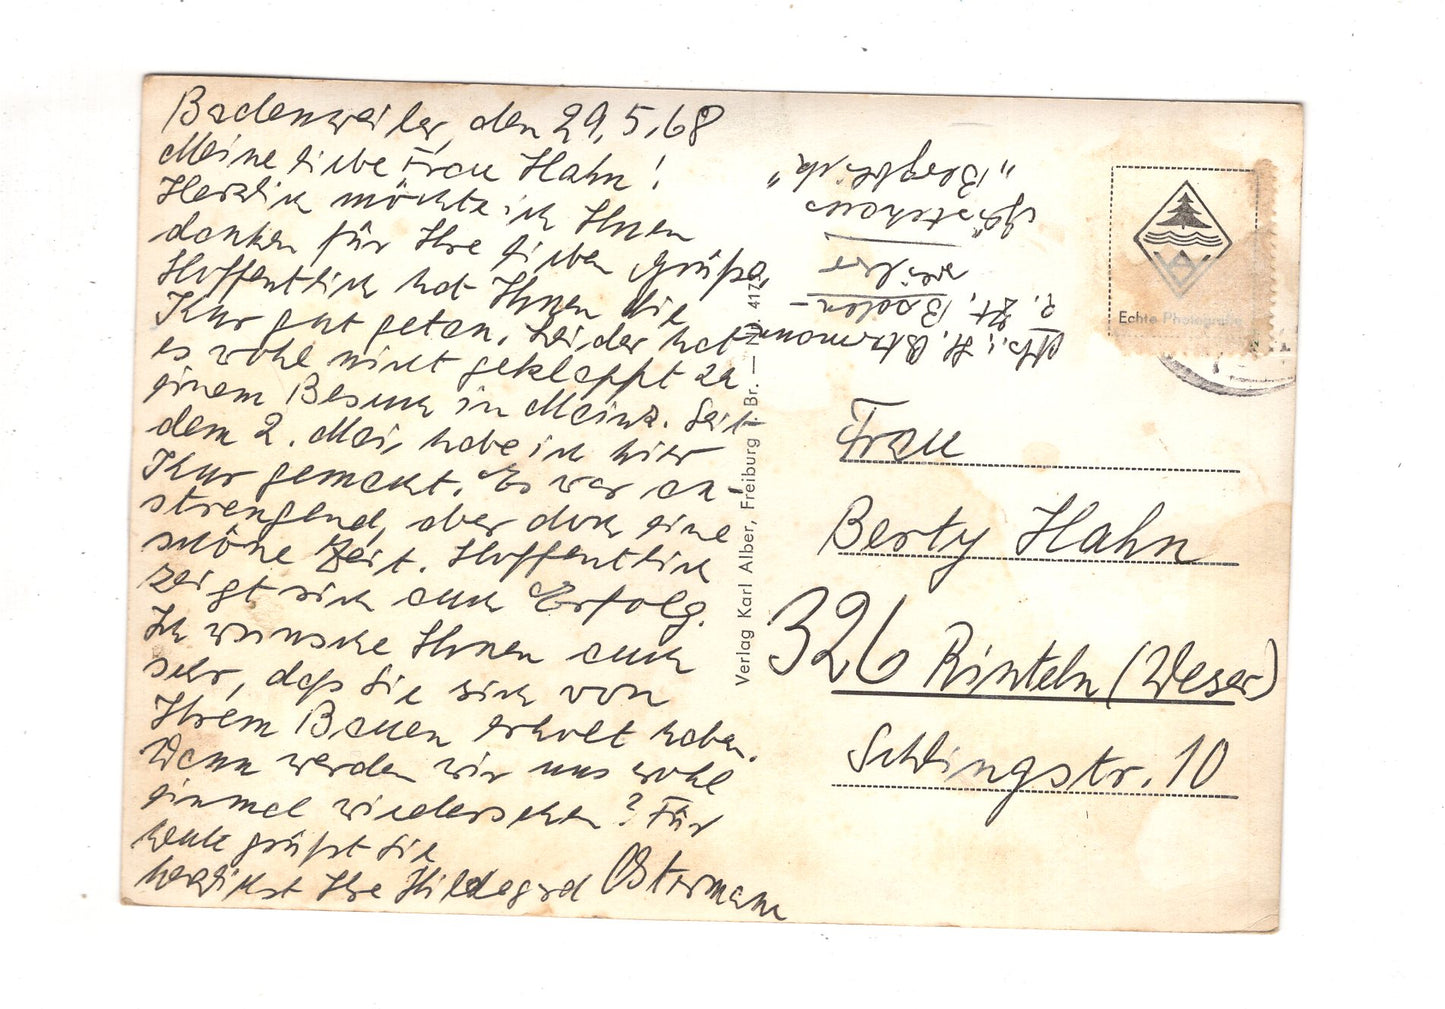 Badenweiler, den 29.5.68
Meine liebe Frau Hahn!
Herzlich möchte ich Ihnen
danken für Ihre lieben Grüße.
Hoffentlich hat Ihnen die
Kur gut getan. Leider hat
es wohl nicht geklappt zu
einem Besuch in Mainz. Seit
dem 2. Mai habe ich hier
Kur gemacht. Es war an-
strengend, aber doch eine
schöne Zeit. Hoffentlich
zeigt sich auch Erfolg.
Ich wünsche Ihnen auch
sehr, daß Sie sich von
Ihrem Bauen erholt haben.
Wann werden wir uns wohl
einmal wiedersehen? Für
heute grüßt Sie
herzlichst Ihre Hildegard Ostermann
Verlag Karl Alber, Freiburg i. Br. — Nr. 417
Abs.: H. Ostermann
z. Zt. Baden-
weiler
Gästehaus
„Bergblick"
Echte Photografie
Frau
Berty Hahn
326 Rinteln (Weser)
Schlingstr. 10